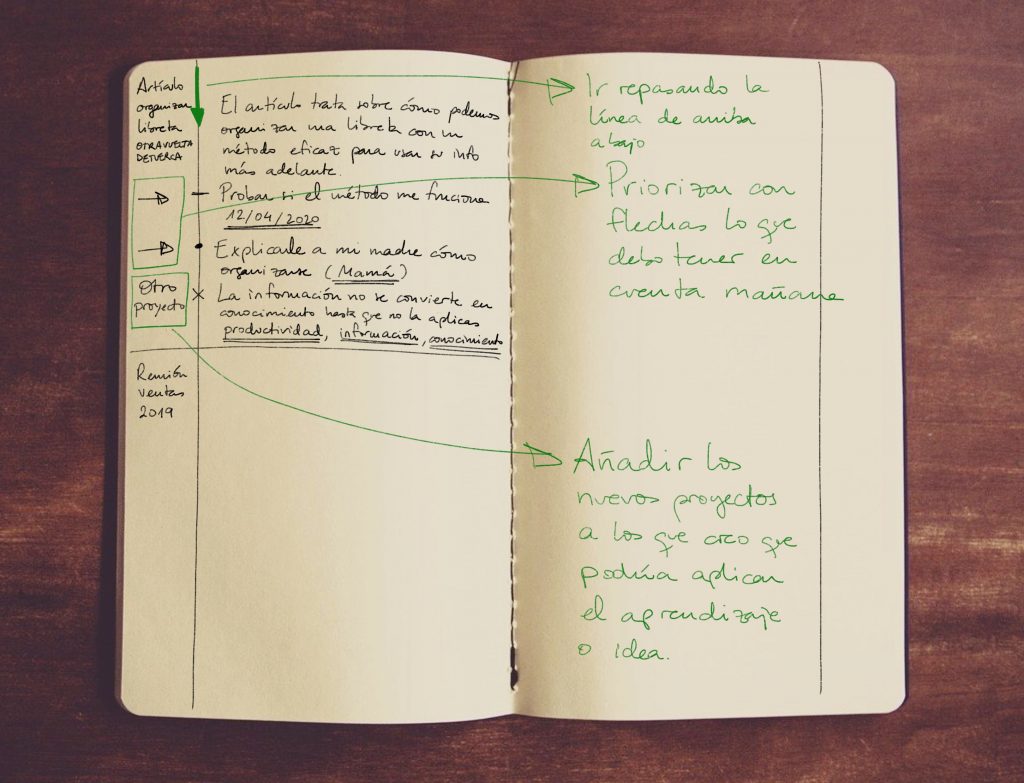 Artículo
organizar
libreta
OTRA VUELTA
DE TUERCA
El artículo trata sobre cómo podemos
organizar una libreta con un
método eficaz para usar su info
más adelante.
Probar si el método me funciona
12/04/2020
Explicarle a mi madre cómo
organizarse (Mamá)
Otro
proyecto
La información no se convierte en
conocimiento hasta que no la aplicas
productividad, información, conocimiento
Reunión
ventas
2019
Ir repasando la
línea de arriba
abajo
Priorizar con
flechas lo que
debo tener en
cuenta mañana
Añadir los
nuevos proyectos
a los que creo que
podría aplicar
el aprendizaje
o idea.